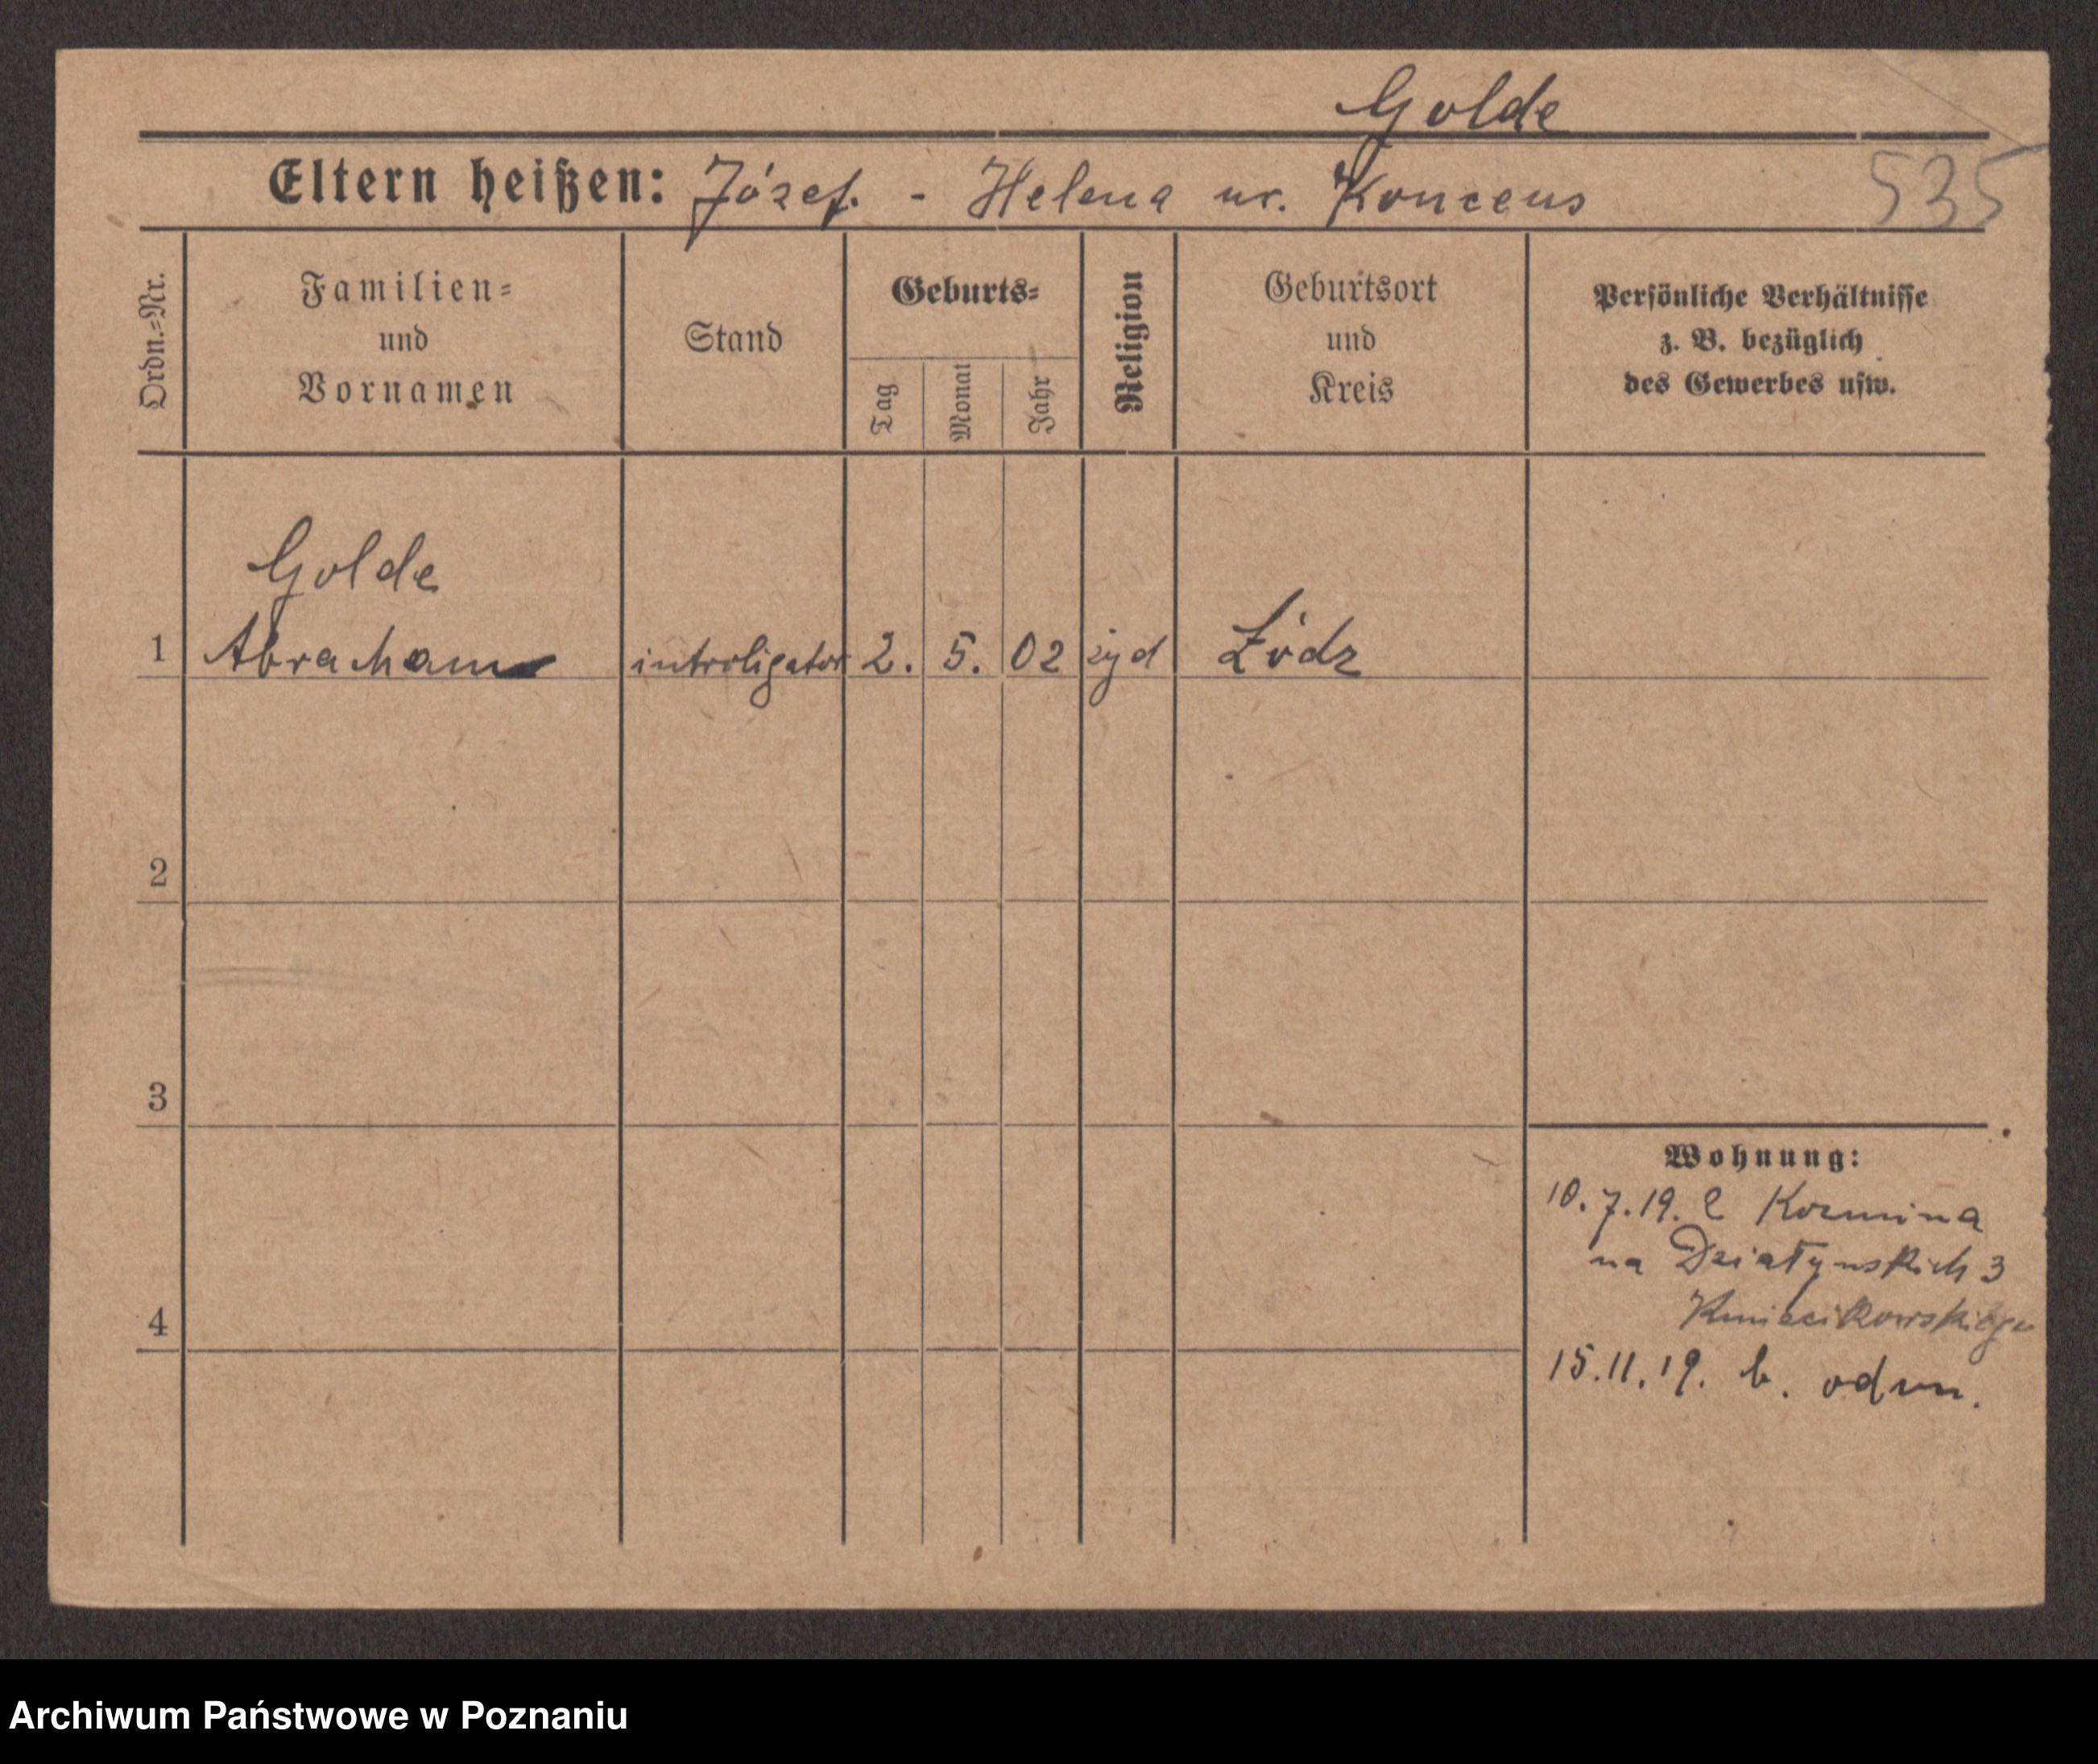 Golde
Eltern heißen: Józef. - Helena ur. Konceus
535
Ordn.=Nr.
Familien=
und
Vornamen
Stand
Geburts=
Tag
Monat
Jahr
Religion
Geburtsort
und
Kreis
Persönliche Verhältnisse
z. B. bezüglich
des Gewerbes usw.
Golde
1 Abraham introligator 2. 5. 02 żyd Łódz
2
3
4
Wohnung:
10.7.19. z Kozmina
na Działynskich 3
15.11.19. b. odm.
Archiwum Państwowe w Poznaniu